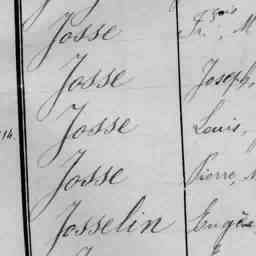 Josse Fr.çois, M
Josse Joseph,
Josse Louis,
114. Josse Pierre, M
Josselin Eugène